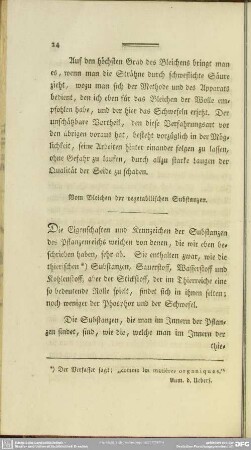 24
Auf den höchsten Grad des Bleichens bringt man
es, wenn man die Strähne durch schweflichte Säure
zieht, wozu man sich der Methode und des Apparats
bedient, den ich eben für das Bleichen der Wolle em-
pfohlen habe, und der hier das Schwefeln ersetzt. Der
unschätzbare Vortheil, den diese Verfahrungsart vor
den übrigen voraus hat, besteht vorzüglich in der Mög-
lichkeit, seine Arbeiten hinter einander folgen zu lassen,
ohne Gefahr zu laufen, durch allzu starke Laugen der
Qualität der Seide zu schaden.
Vom Bleichen der vegetabilischen Substanzen.
Die Eigenschaften und Kennzeichen der Substanzen
des Pflanzenreichs weichen von denen, die wir eben be-
schrieben haben, sehr ab. Sie enthalten zwar, wie die
thierischen *) Substanzen, Sauerstoff, Wasserstoff und
Kohlenstoff, aber der Stickstoff, der im Thierreiche eine
so bedeutende Rolle spielt, findet sich in ihnen selten;
noch weniger der Phosphor und der Schwefel.
Die Substanzen, die man im Innern der Pflan-
zen findet, sind, wie die, welche man im Innern der
thie-
*) Der Verfasser sagt: „comme les matières organiques.“
Anm. d. Uebers.